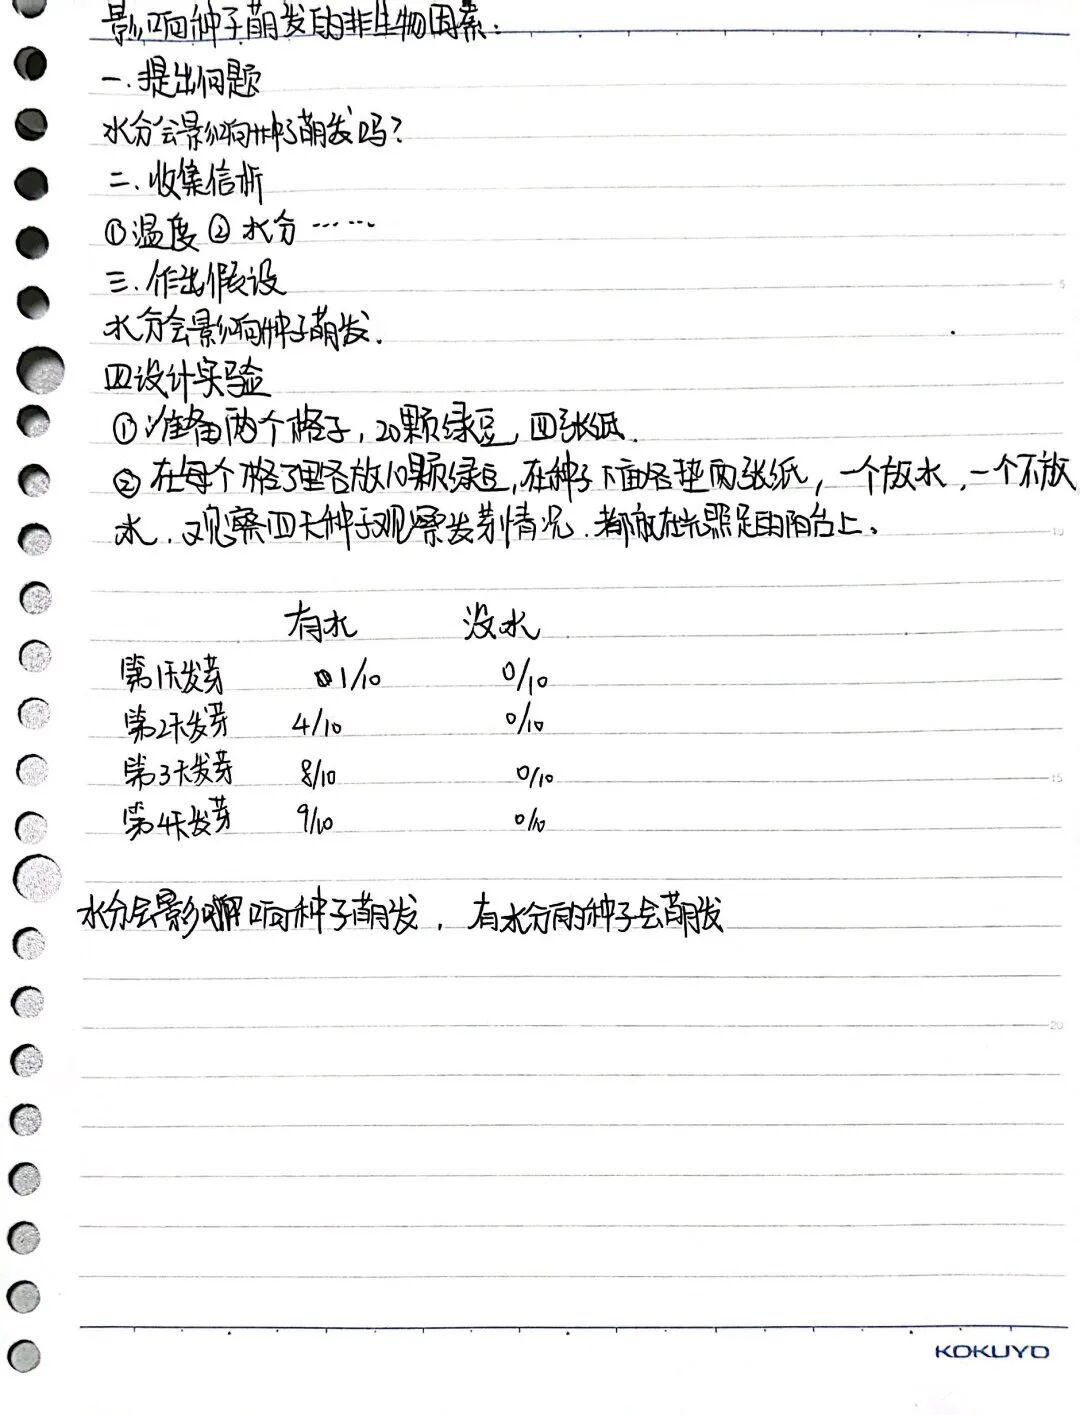 影响种子萌发的非生物因素:
一.提出问题
水分会影响种子萌发吗?
二.收集信析
①温度②水分……
三.作出假设
水分会影响种子萌发.
四设计实验
①准备两个格子,20颗绿豆,四张纸.
②在每个格子里各放10颗绿豆,在种子下面各垫两张纸,一个放水,一个不放
水,观察四天种子观察发芽情况.都放在光照足的阳台上。
有水 没水
第1天发芽 1/10 0/10
第2天发芽 4/10 0/10
第3天发芽 8/10 0/10
第4天发芽 9/10 0/10
水分会影响种子萌发,有水分的种子会萌发
5
10
15
20
KOKUYO